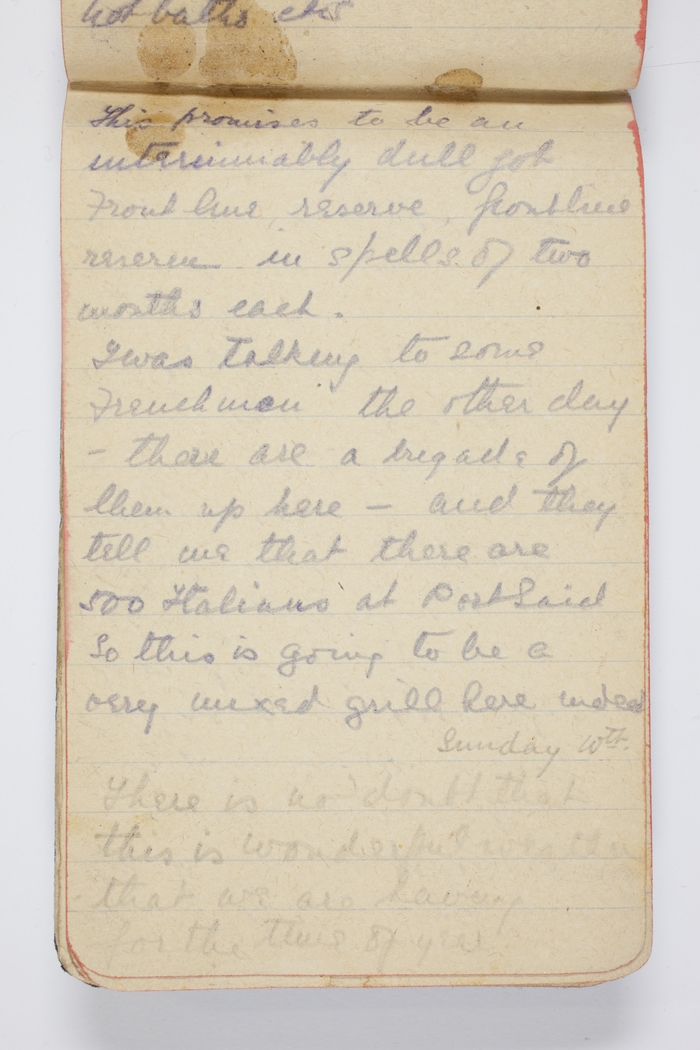 hot baths etc
This promises to be an
interminably dull job
Front line, reserve, frontline
reserve in spells of two
months each.
I was talking to some
Frenchmen the other day
- there are a brigade of
them up here - and they
tell me that there are
500 Italians at Port Said
So this is going to be a
very mixed grill here indeed
Sunday 10th.
There is no doubt that
this is wonderful weather
that we are having
for the time of year